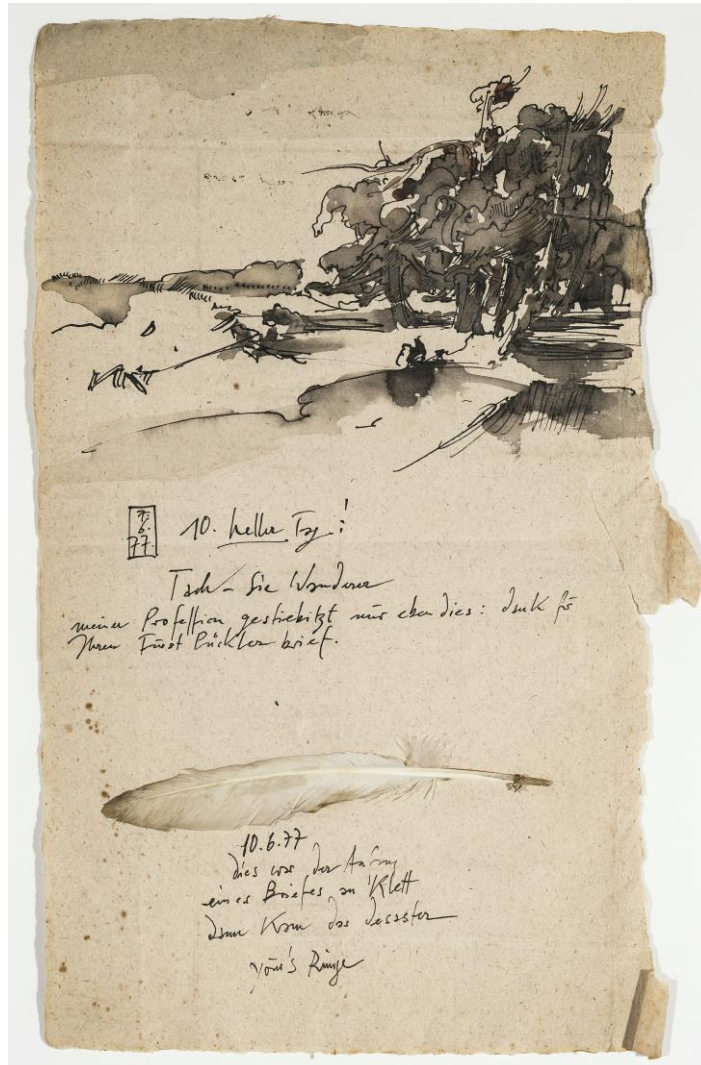 9.
6.
77
10. heller Tag!
Tach – Sie Wanderer
meiner Profession gestiebitzt nur eben dies: dank für
Ihren Fürst Pückler brief.
10.6.77
dies war der Anfang
eines Briefes an Klett
dann kam das Desaster